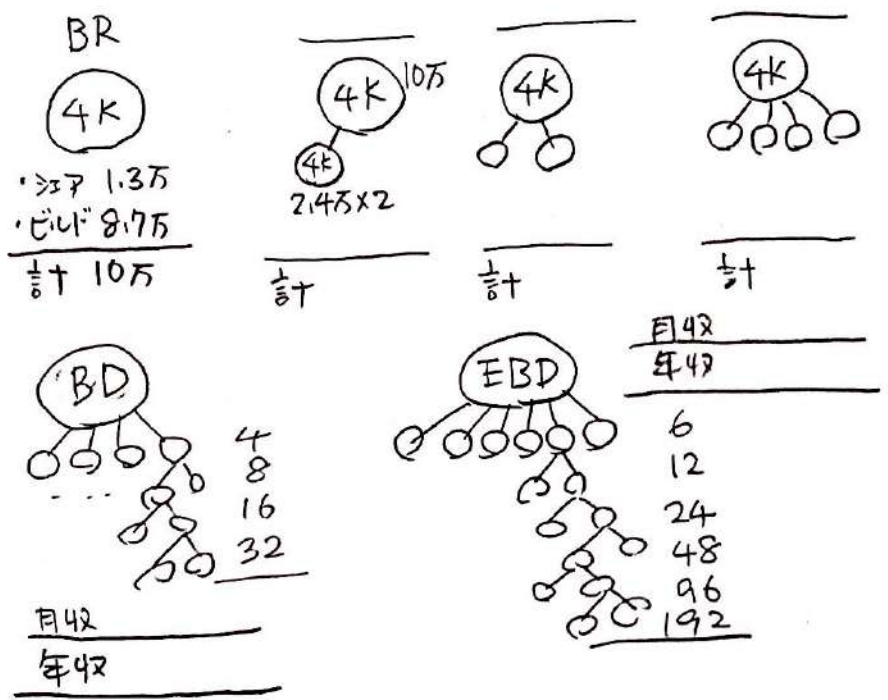 BR
4K
・シェア 1.3万
・ビルド 8.7万
計 10万
4K 10万
4K
2.4万×2
計
4K
計
4K
計
BD
4
8
16
32
月収
年収
月収
年収
EBD
6
12
24
48
96
192